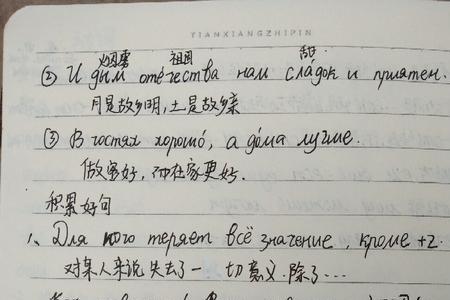 TIANXIANGZHIPIN
烟雾 祖国 甜
② И дым оте́чества нам сла́док и приятен.
月是故乡明,土是故乡亲
③ В гостях хорошо́, а до́ма лучше.
做客好,但在家更好.
积累好句
1、Для кого теряет всё значение, кроме +2.
对某人来说 失去了一切意义.除了…